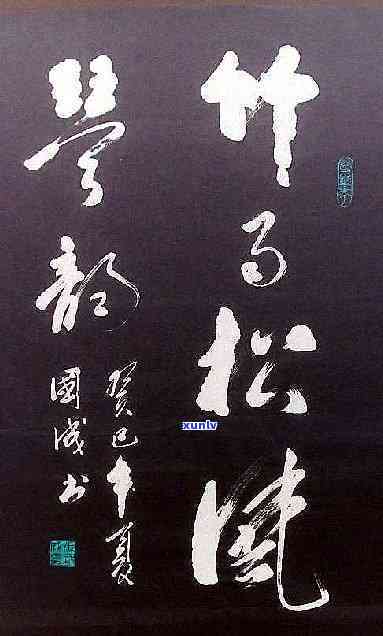 竹雨松濤
琴韵
癸巳年夏
國成书
xunlv